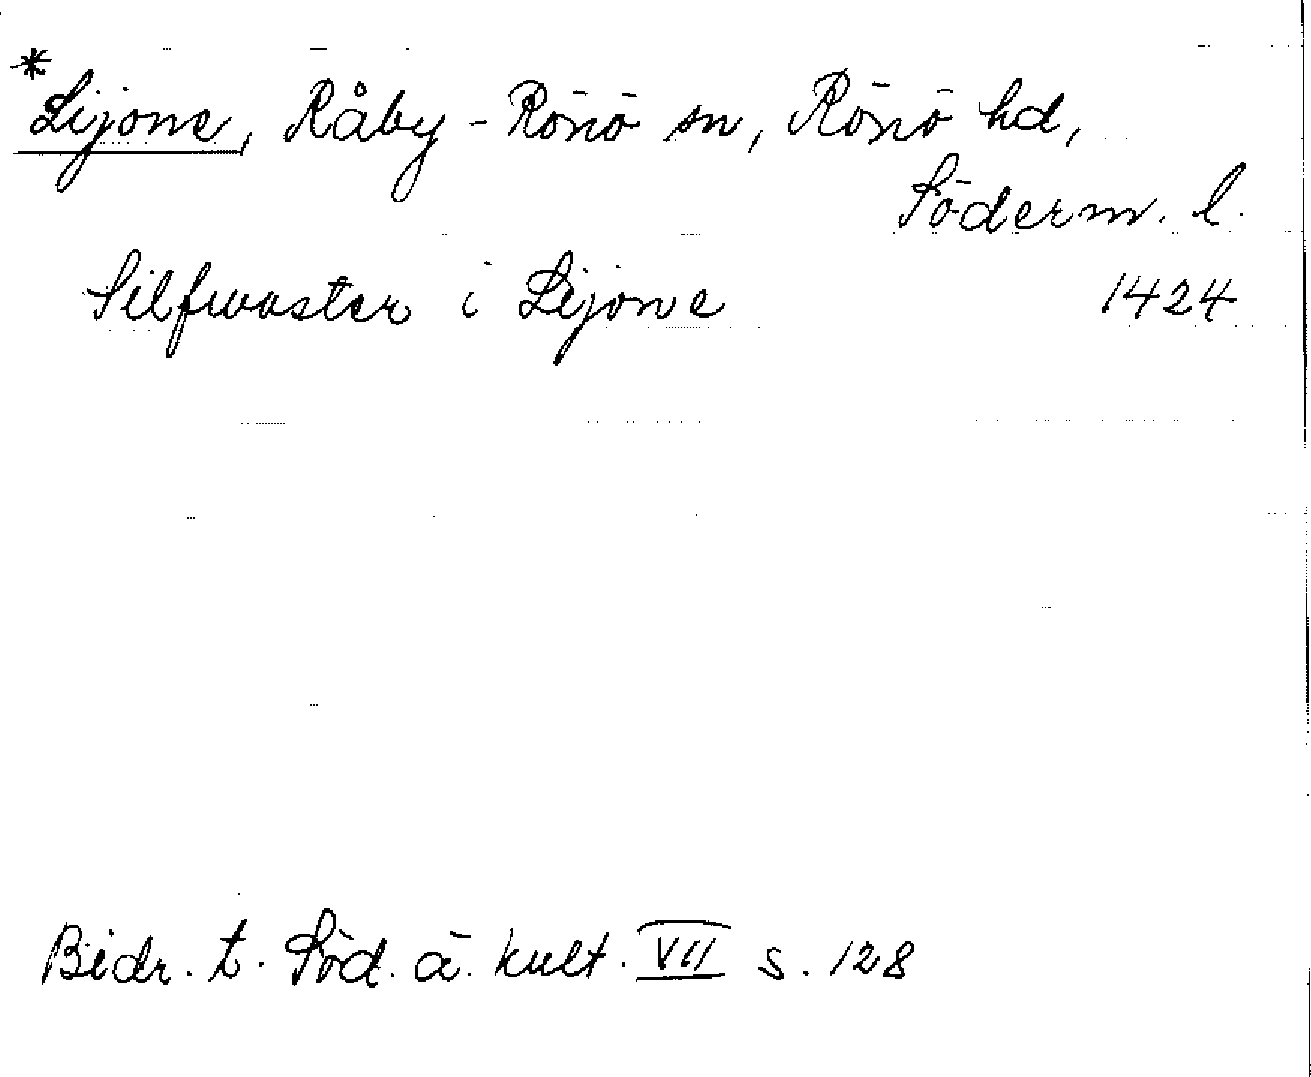 *Lijone, Råby-Rönö sn, Rönö hd,
Söderm. l.
Silfwaster i Lijone 1424
Bidr. t. Söd. ä. kult. VII s. 128